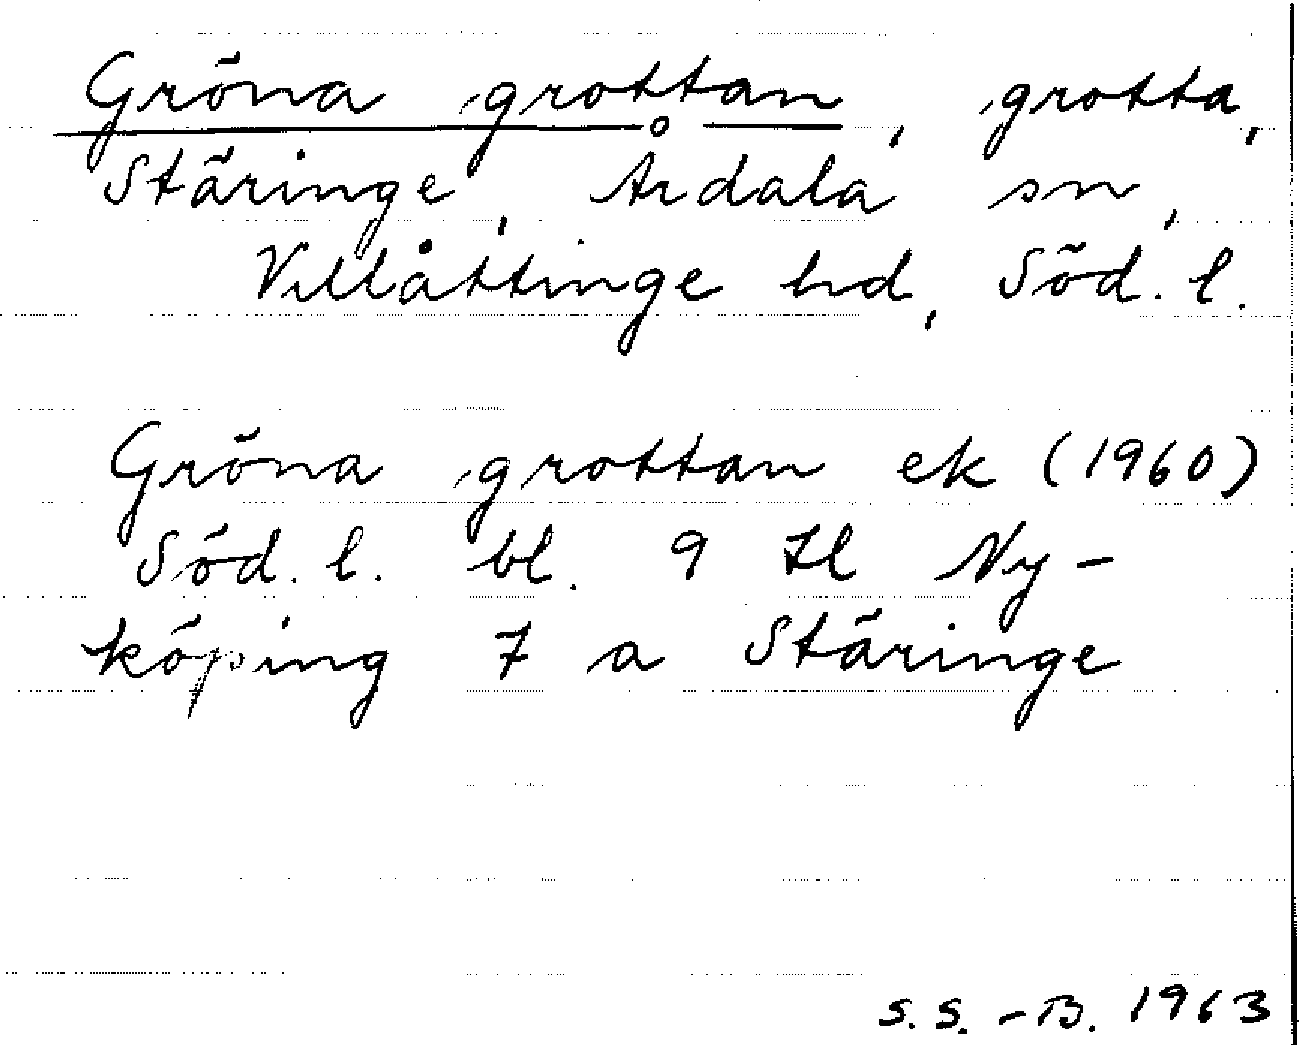 Gröna grottan, grotta,
Stäringe, Årdala sn,
Villåttinge hd, Söd. l.
Gröna grottan ek (1960)
Söd. l. bl. 9 tl Ny-
köping 7 a Stäringe
S. S. -B. 1963